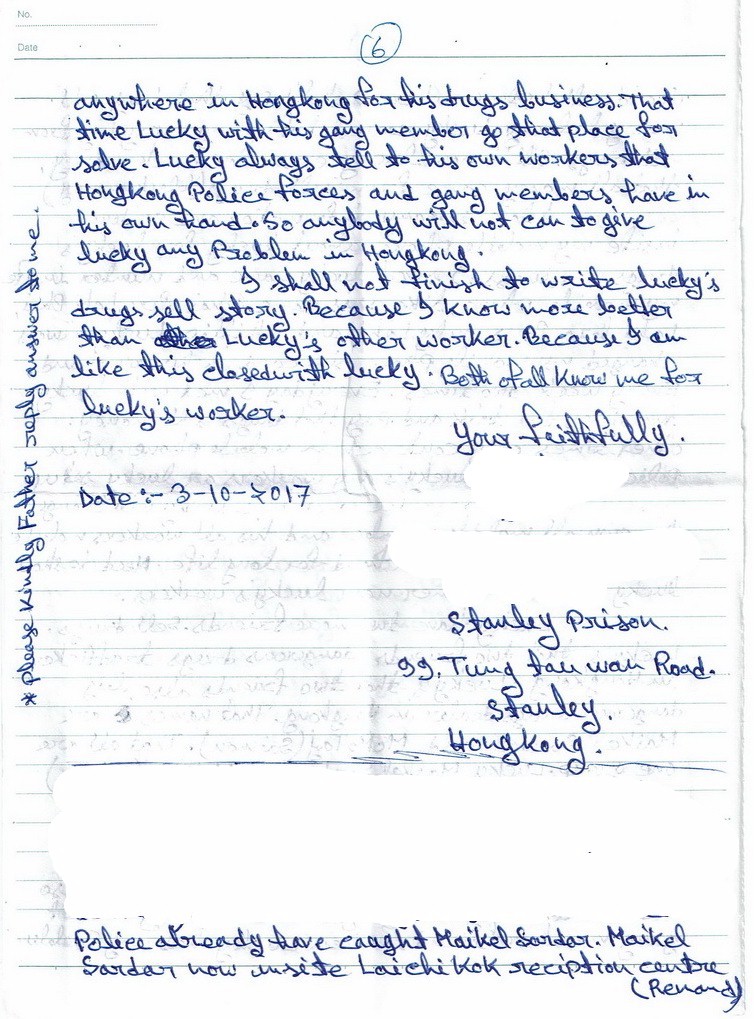 No.
Date
6
anywhere in Hongkong for his drugs business. That
time Lucky with his gang member go that place for
solve. Lucky always tell to his own workers that
Hongkong Police forces and gang members have in
his own hand. So anybody will not can to give
lucky any Problem in Hongkong.
I shall not finish to write lucky's
drugs sell story. Because I know more better
than Lucky's other worker. Because I am
like this closedwith lucky. Both of all know me for
lucky's worker.
Your faithfully.
Date :- 3-10-2017
Stanley Prison.
99, Tung tau wan Road.
Stanley.
Hongkong.
Police already have caught Maikel Sardar. Maikel
Sardar now insite Laichi Kok reciption centre
(Remand)
* please kindly Father reply answer to me.